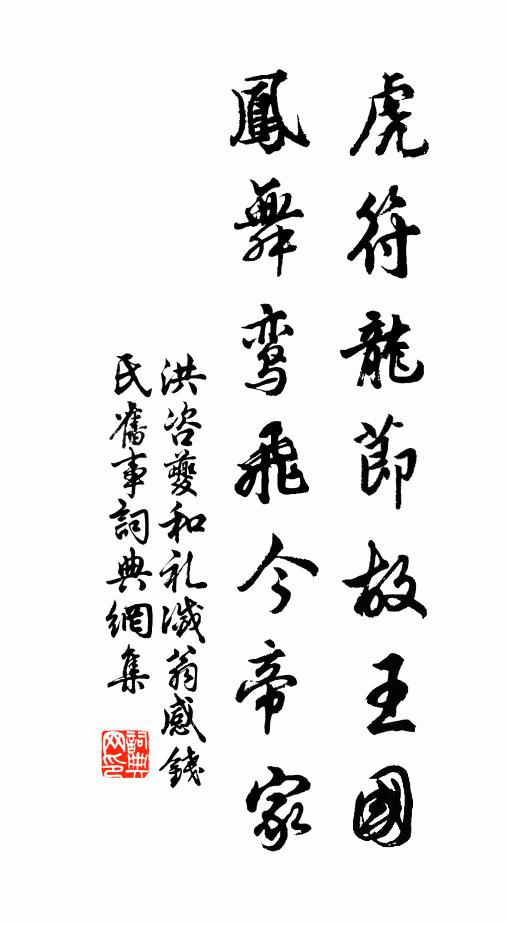 虎符龍節故王國
鳳舞鸾飛今帝家
洪咨夔和礼溅翁感錢
民舊事詞典網集
詞典网印